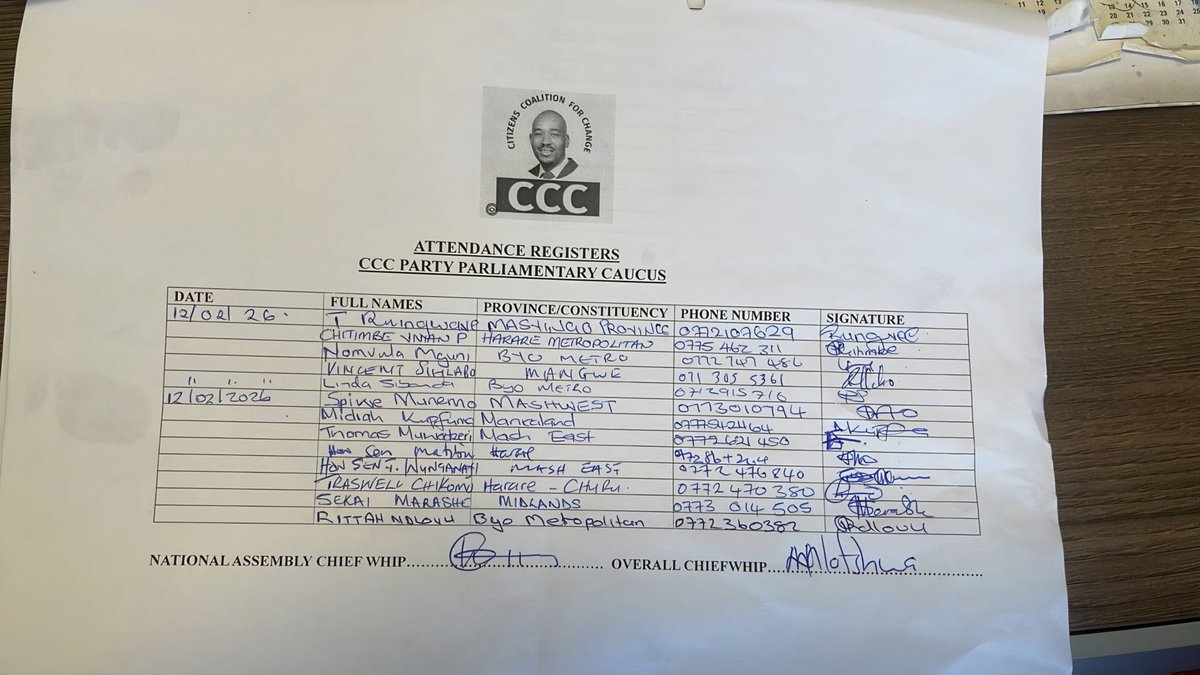 CITIZENS COALITION FOR CHANGE
CCC
ATTENDANCE REGISTERS
CCC PARTY PARLIAMENTARY CAUCUS
DATE FULL NAMES PROVINCE/CONSTITUENCY PHONE NUMBER SIGNATURE
12/02/26. T MASVINGO PROVINCE 0772107629
CHITIMBE VIVIAN P HARARE METROPOLITAN 0775 462 311 Chitimbe
Nomvula Mguni BYO METRO 0772 747 486
VINCENT SIHLABO MANGWE 071 305 5361
" " " Linda Sibanda Byo METRO 0712915716
12/02/2026 Spiwe Munemo MASHWEST 0773010794
Midiah Manicaland 0777542464
Thomas Mash East 0772621450
Hon Sen
HON SEN T. MASH EAST 0772 476 840
Harare - CHURU. 0772 470 380
SEKAI MARASHE MIDLANDS 0773 014 505
RITTAH NDLOVU Byo Metropolitan 0772360382 Ndlovu
NATIONAL ASSEMBLY CHIEF WHIP.......... OVERALL CHIEFWHIP..........